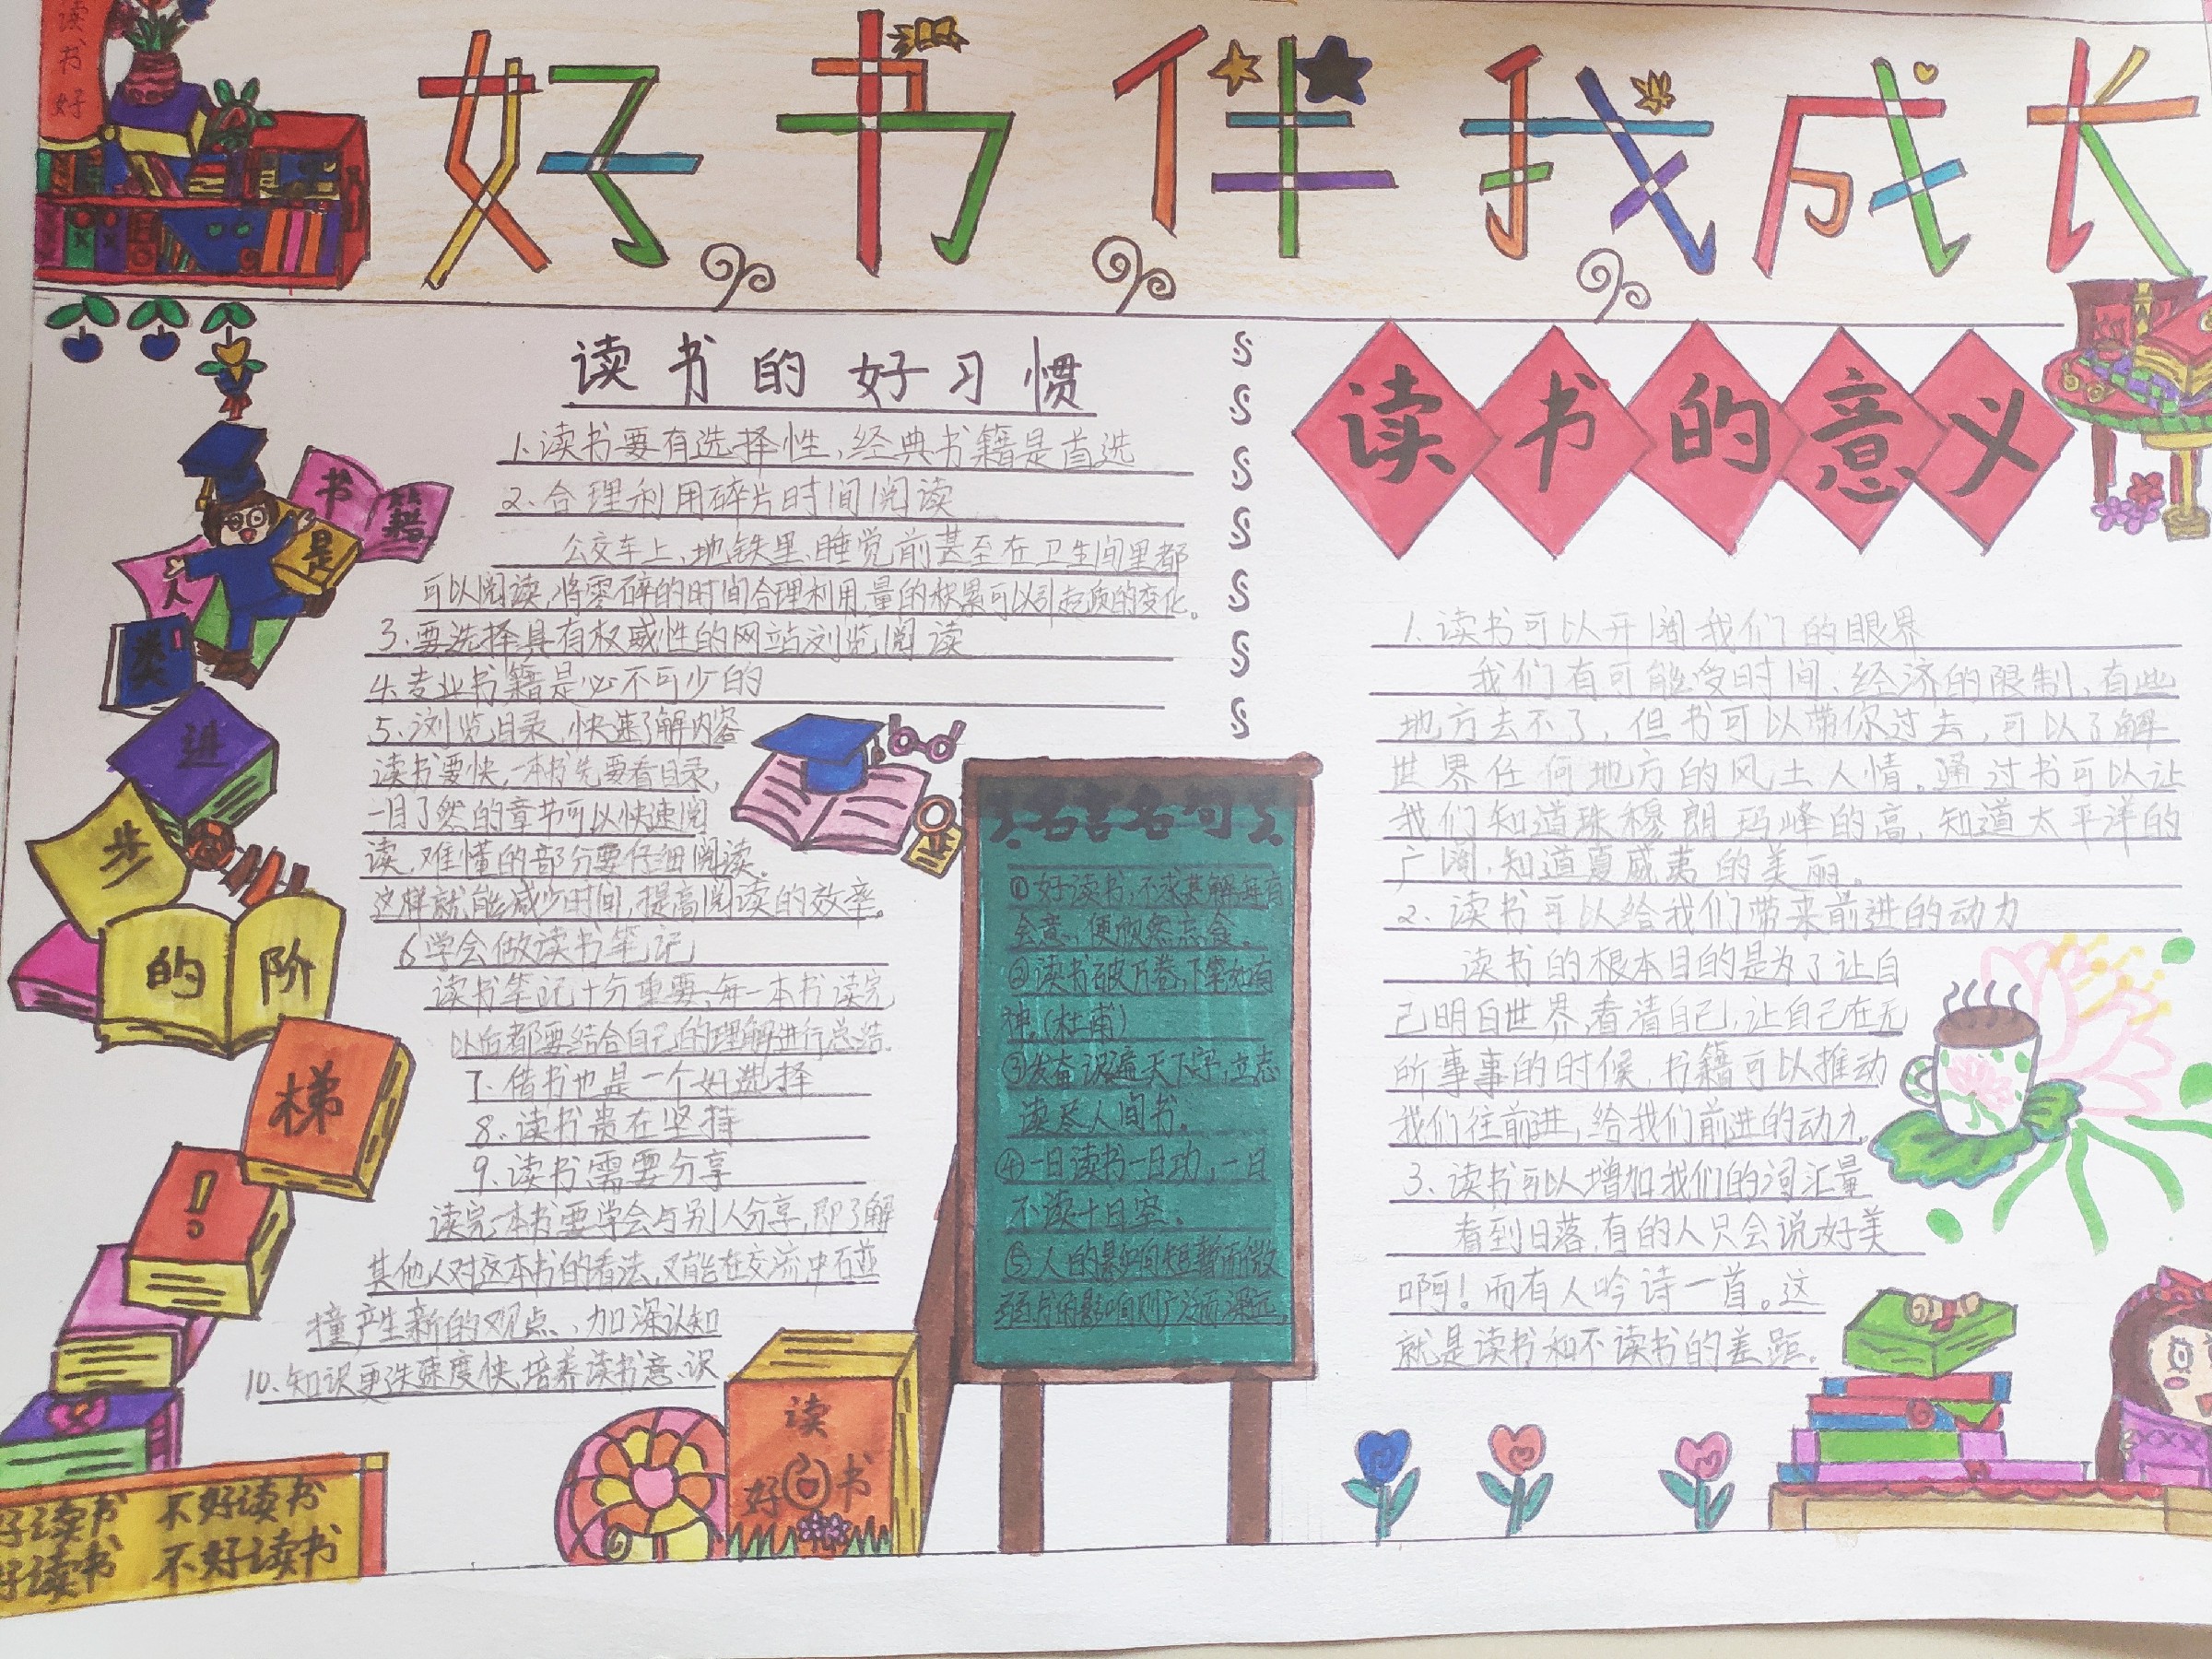 读
书
好
好书伴我成长
读书的好习惯
1.读书要有选择性,经典书籍是首选
2.合理利用碎片时间阅读
公交车上、地铁里、睡觉前甚至在卫生间里都
可以阅读,将零碎的时间合理利用,量的积累可以引起质的变化。
3.要选择具有权威性的网站浏览阅读
4.专业书籍是必不可少的
5.浏览目录,快速了解内容
读书要快,一本书先要看目录,
一目了然的章节可以快速阅
读,难懂的部分要仔细阅读。
这样就能减少时间,提高阅读的效率。
6学会做读书笔记
读书笔记十分重要,每一本书读完
以后都要结合自己的理解进行总结.
7、借书也是一个好选择
8.读书贵在坚持
9.读书需要分享
读完一本书要学会与别人分享,即了解
其他人对这本书的看法,又能在交流中
撞产生新的观点、加深认知
10.知识更迭速度快,培养读书意识
书籍
是
人
类
进
步
的阶
梯
!
好读书 不好读书
好读书 不好读书
读
好 书
名言名句
①好读书,不求甚解每有
会意,便欣然忘食。
②读书破万卷,下笔如有
神。(杜甫)
③发奋识遍天下字,立志
读尽人间书。
④一日读书一日功,一日
不读十日空。
⑤人的影响短暂而微
弱书的影响则广泛而深远。
读书的意义
1.读书可以开阔我们的眼界
我们有可能受时间、经济的限制,有些
地方去不了,但书可以带你过去,可以了解
世界任何地方的风土人情。通过书可以让
我们知道珠穆朗玛峰的高,知道太平洋的
广阔,知道夏威夷的美丽。
2、读书可以给我们带来前进的动力
读书的根本目的是为了让自
己明白世界,看清自己,让自己在无
所事事的时候,书籍可以推动
我们往前进,给我们前进的动力.
3、读书可以增加我们的词汇量
看到日落,有的人只会说好美
啊!而有人吟诗一首。这
就是读书和不读书的差距.